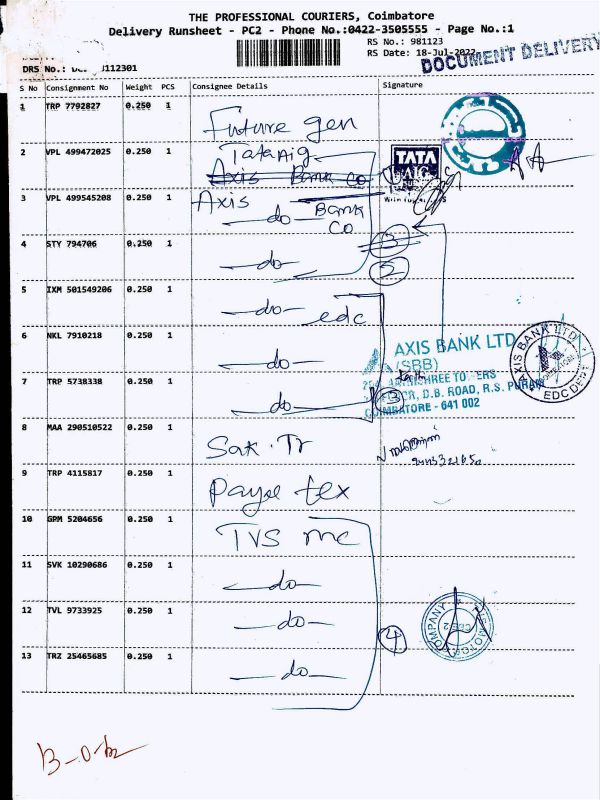 THE PROFESSIONAL COURIERS, Coimbatore
Delivery Runsheet - PC2 - Phone No.:0422-3505555 - Page No.:1
RS No.: 981123
RS Date: 18-Jul-2022
DOCUMENT DELIVERY
DRS No.:
S No Consignment No Weight PCS Consignee Details Signature
1 TRP 7792827 0.250 1 Future gen
2 VPL 499472025 0.250 1 Tata Aig
Axis Bank CO
TATA
AIG
3 VPL 499545208 0.250 1 Axis Bank CO
—do—
4 STY 794706 0.250 1 —do—
3
2
5 IXM 501549206 0.250 1 —do— edc
6 NKL 7910218 0.250 1 —do—
AXIS BANK LTD
(SBB)
7 TRP 5738338 0.250 1 —do— 3
D.B. ROAD, R.S. PURAM
COIMBATORE - 641 002
AXIS BANK LTD
EDC DEPT
8 MAA 290510522 0.250 1 Sak. Tr
9 TRP 4115817 0.250 1 Paye tex
10 GPM 5204656 0.250 1 TVS mc
11 SVK 10290686 0.250 1 —do—
12 TVL 9733925 0.250 1 —do—
4
COMPANY
13 TRZ 25465685 0.250 1 —do—